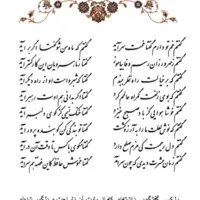 گفتم غم تو دارم گفتا غمت سر آید گفتم که ماه من شو گفتا اگر برآید
گفتم ز مهرورزان رسم وفا بیاموز گفتا ز خوبرویان این کار کمتر آید
گفتم که بر خیالت راه نظر ببندم گفتا که شب رو است او از راه دیگر آید
گفتم که بوی زلفت گمراه عالمم کرد گفتا اگر بدانی هم اوت رهبر آید
گفتم خوشا هوایی کز باد صبح خیزد گفتا خنک نسیمی کز کوی دلبر آید
گفتم که نوش لعلت ما را به آرزو کشت گفتا تو بندگی کن کو بنده پرور آید
گفتم دل رحیمت کی عزم صلح دارد گفتا مگوی با کس تا وقت آن درآید
گفتم زمان عشرت دیدی که چون سر آمد گفتا خموش حافظ کاین غصه هم سر آید